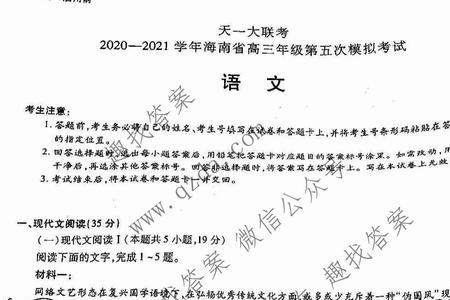 天一大联考
2020—2021 学年海南省高三年级第五次模拟考试
语 文
考生注意:
1. 答题前,考生务必将自己的姓名、考生号填写在试卷和答题卡上,并将考生号条形码粘贴在答
的指定位置。
2. 回答选择题时,选出每小题答案后,用铅笔把答题卡对应题目的答案标号涂黑。如需改动,用
干净后,再选涂其他答案标号。回答非选择题时,将答案写在答题卡上。写在本试卷上无效
3. 考试结束后,将本试卷和答题卡一并交回。
一、现代文阅读(35 分)
(一)现代文阅读Ⅰ(本题共 5 小题,19 分)
阅读下面的文字,完成 1~5 题。
材料一:
网络文艺形态在复兴国学语境下,在弘扬优秀传统文化方面,或多或少充斥着一种“伪国风”现
趣找答案
www.qz
微信公众号
趣找答案